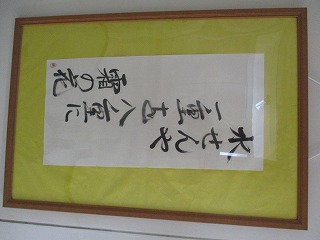 水せんや
一重も八重に
霜の花